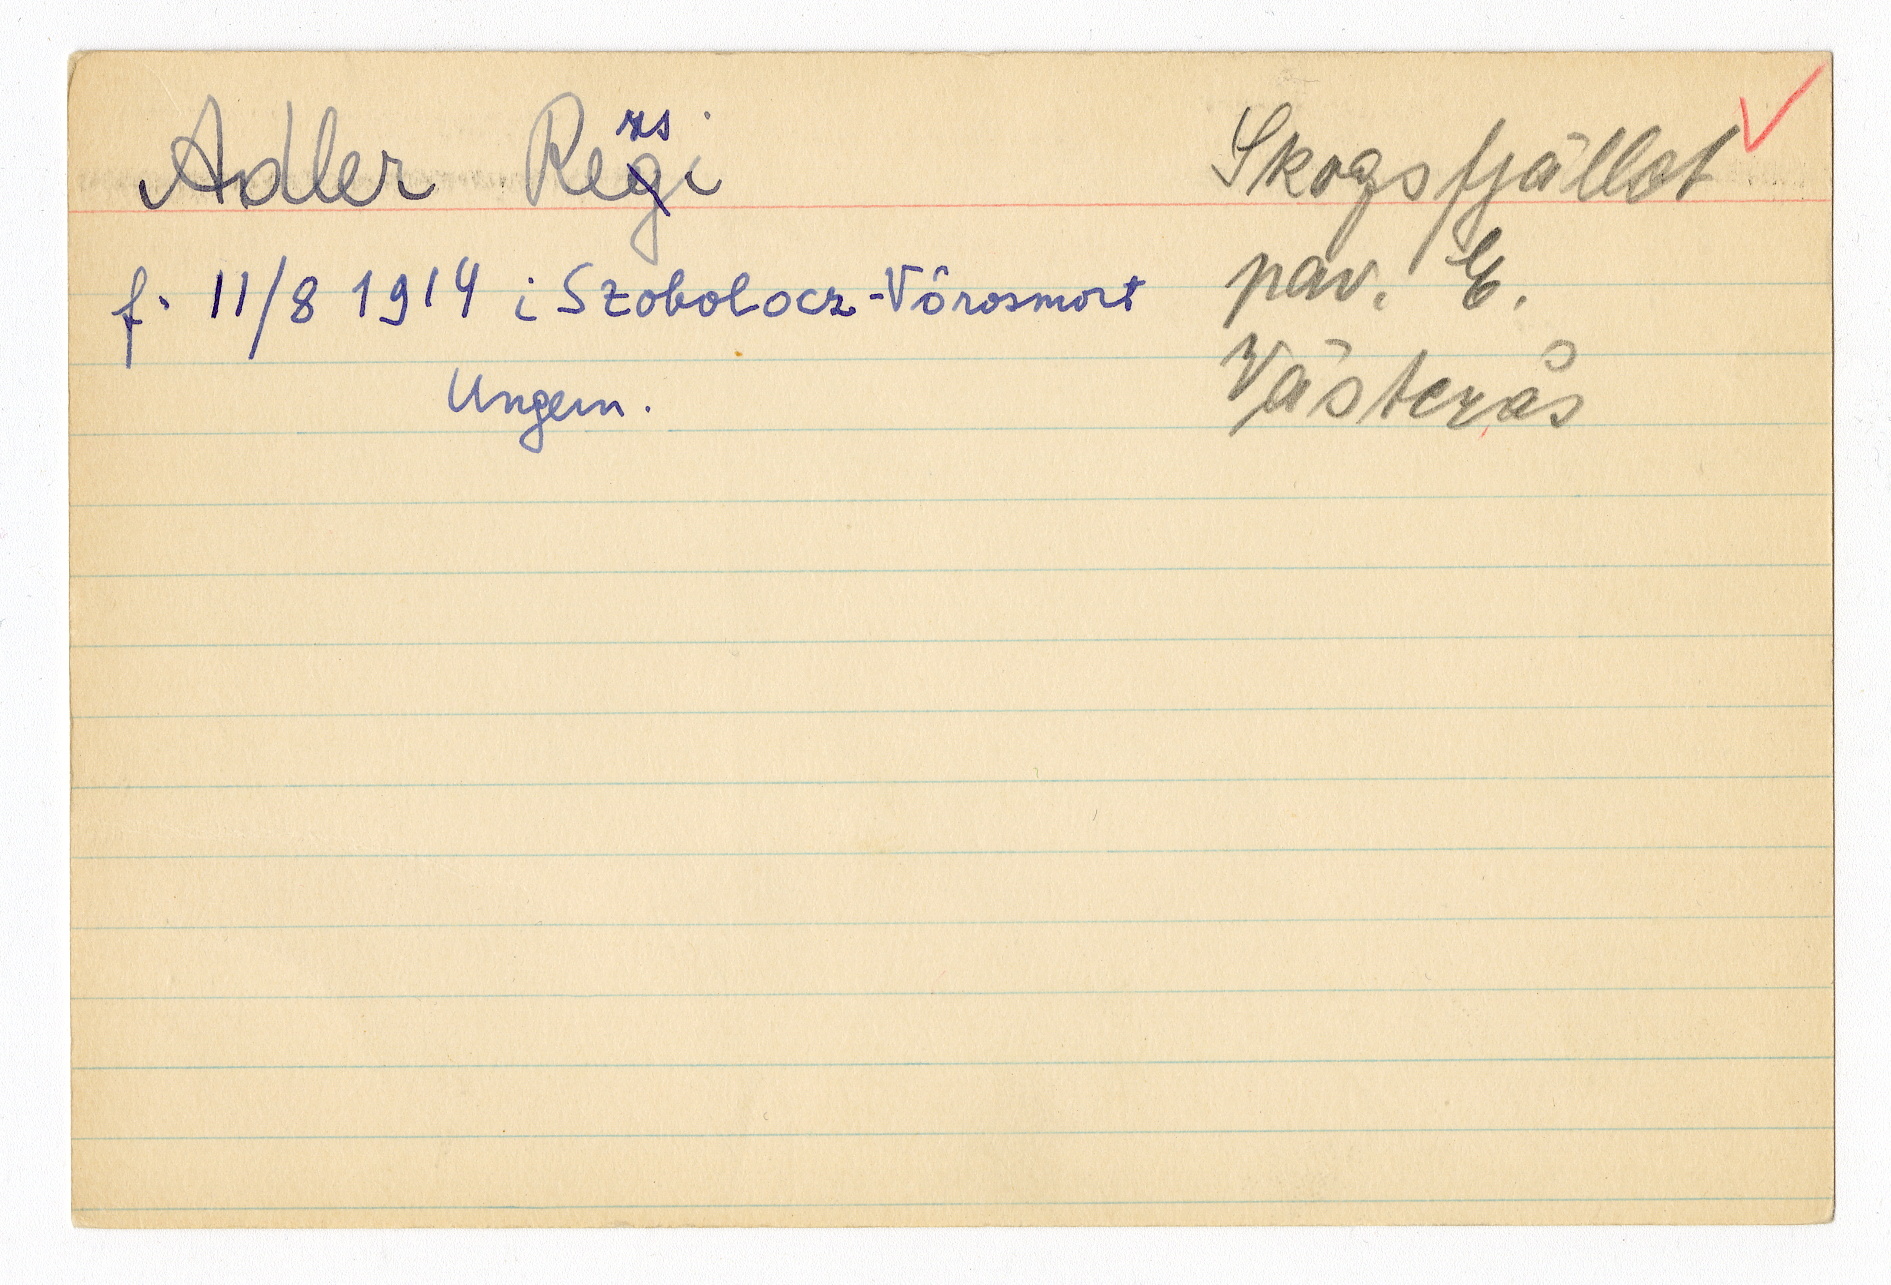 Adler Regi
zs
f. 11/8 1914 i Szobolocz-Vörosmort
Ungern.
Skogsfjället
pav. E.
Västerås